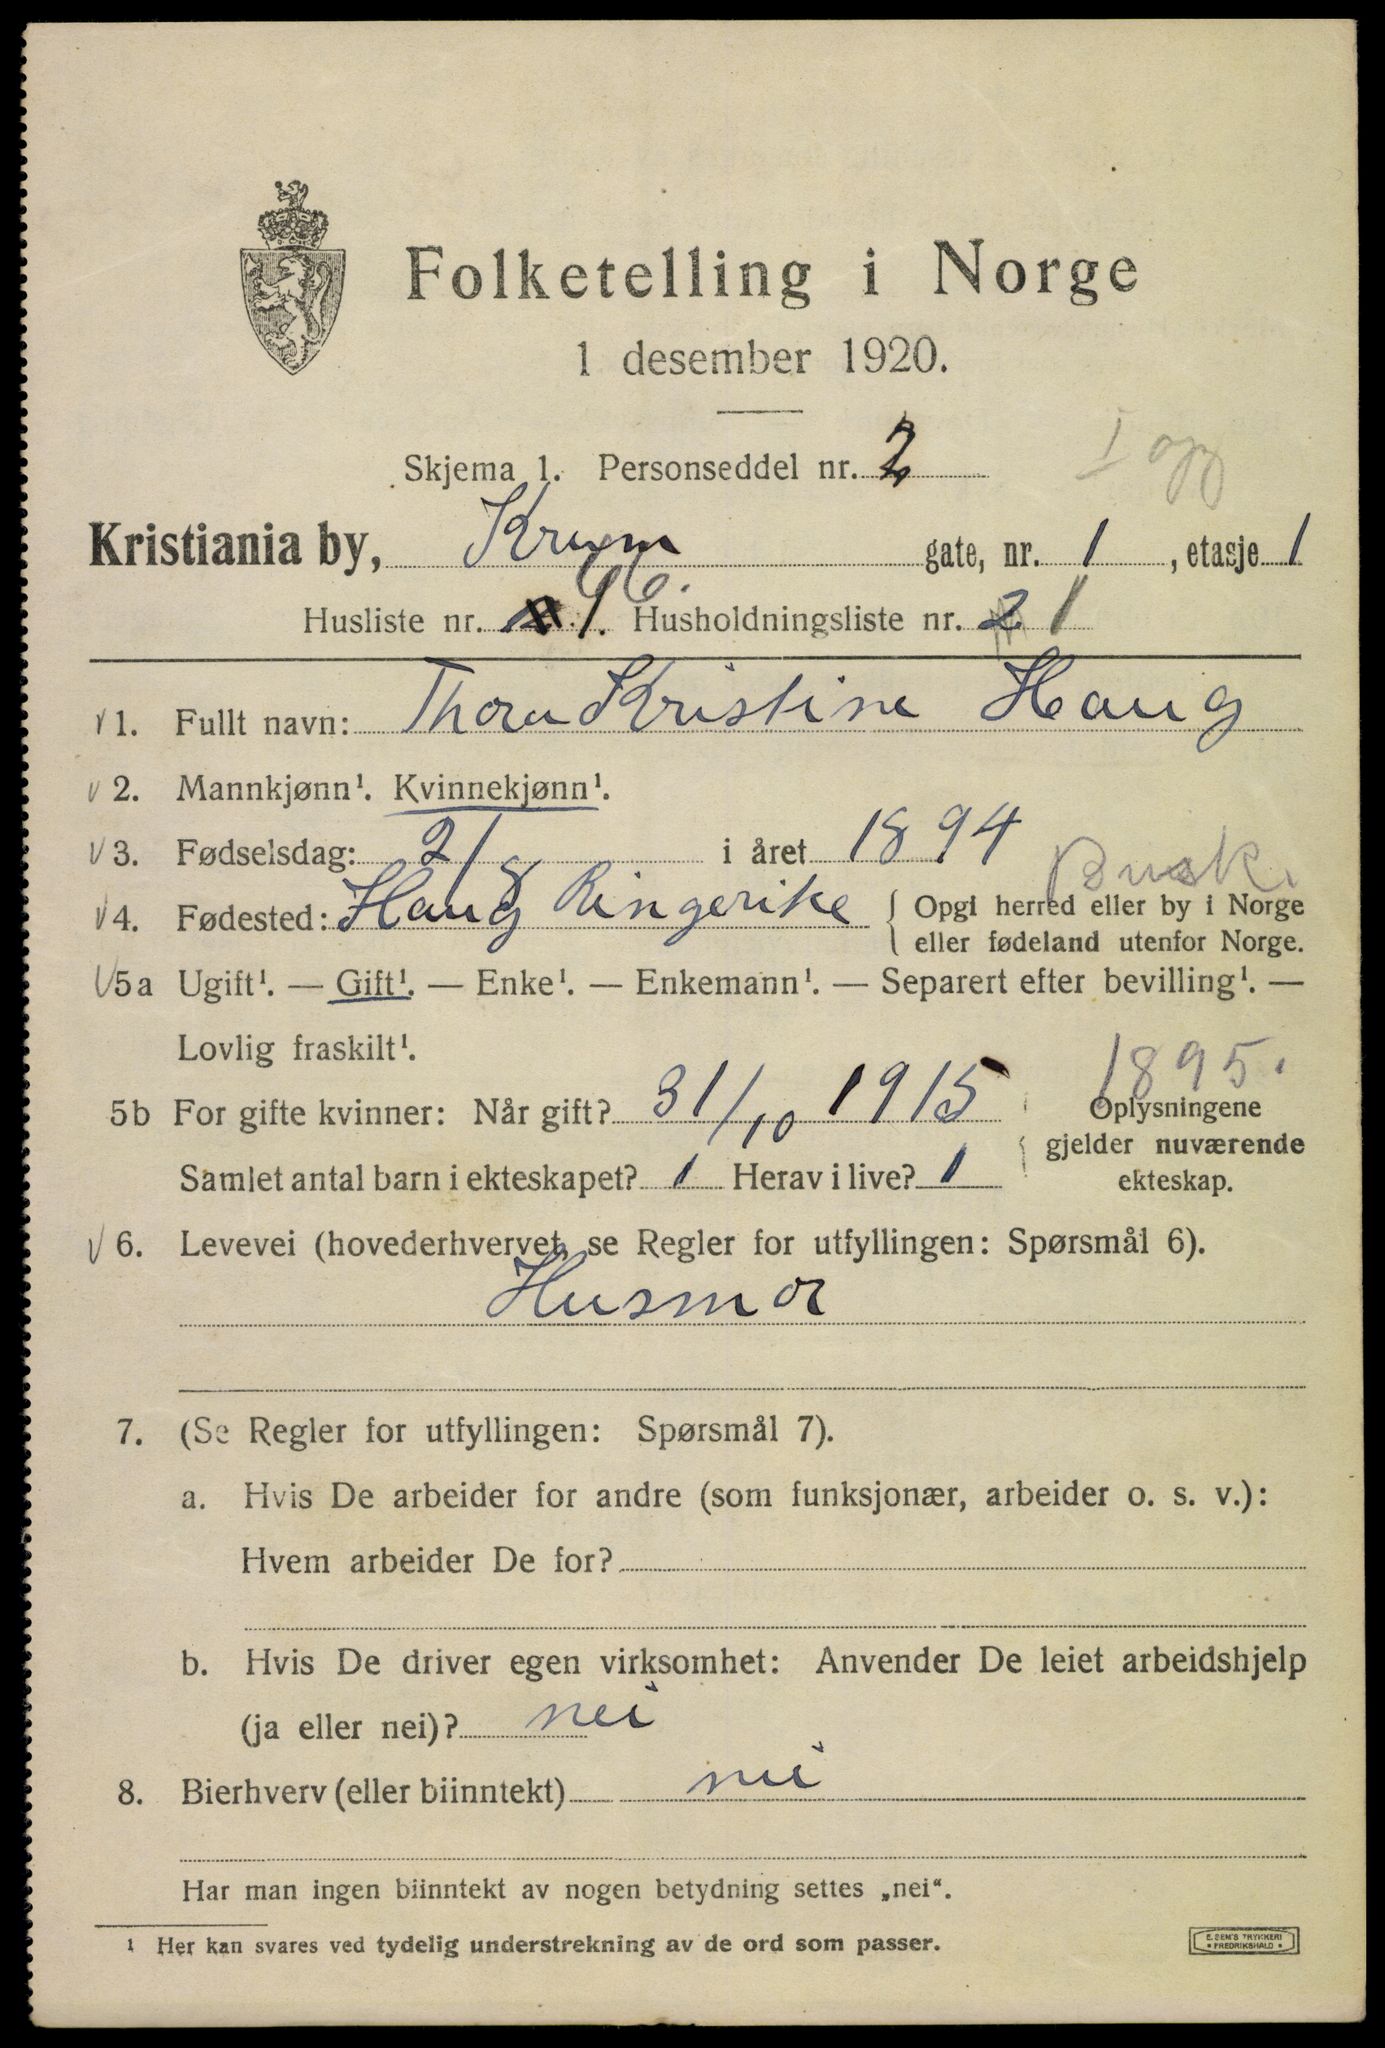 Folketelling i Norge
1 desember 1920.
Skjema 1. Personseddel nr. 2 I opg
Kristiania by, Krum gate, nr. 1, etasje 1
Husliste nr. 1. Husholdningsliste nr. 2 1
1. Fullt navn: Thora Kristine Haug
2. Mannkjønn¹. Kvinnekjønn¹.
3. Fødselsdag: 2/8 i året 1894
Busk.
4. Fødested: Haug Ringerike { Opgi herred eller by i Norge
eller fødeland utenfor Norge.
5a Ugift¹. — Gift¹. — Enke¹. — Enkemann¹. — Separert efter bevilling¹. —
Lovlig fraskilt¹.
1895.
5b For gifte kvinner: Når gift? 31/10 1915 Oplysningene
gjelder nuværende
Samlet antal barn i ekteskapet? 1 Herav i live? 1 ekteskap.
6. Levevei (hovederhvervet, se Regler for utfyllingen: Spørsmål 6).
Husmor
7. (Se Regler for utfyllingen: Spørsmål 7).
a. Hvis De arbeider for andre (som funksjonær, arbeider o. s. v.):
Hvem arbeider De for?
b. Hvis De driver egen virksomhet: Anvender De leiet arbeidshjelp
(ja eller nei)? nei
8. Bierhverv (eller biinntekt) nei
Har man ingen biinntekt av nogen betydning settes „nei“.
¹ Her kan svares ved tydelig understrekning av de ord som passer.
E. SEM'S TRYKKERI
• FREDRIKSHALD •